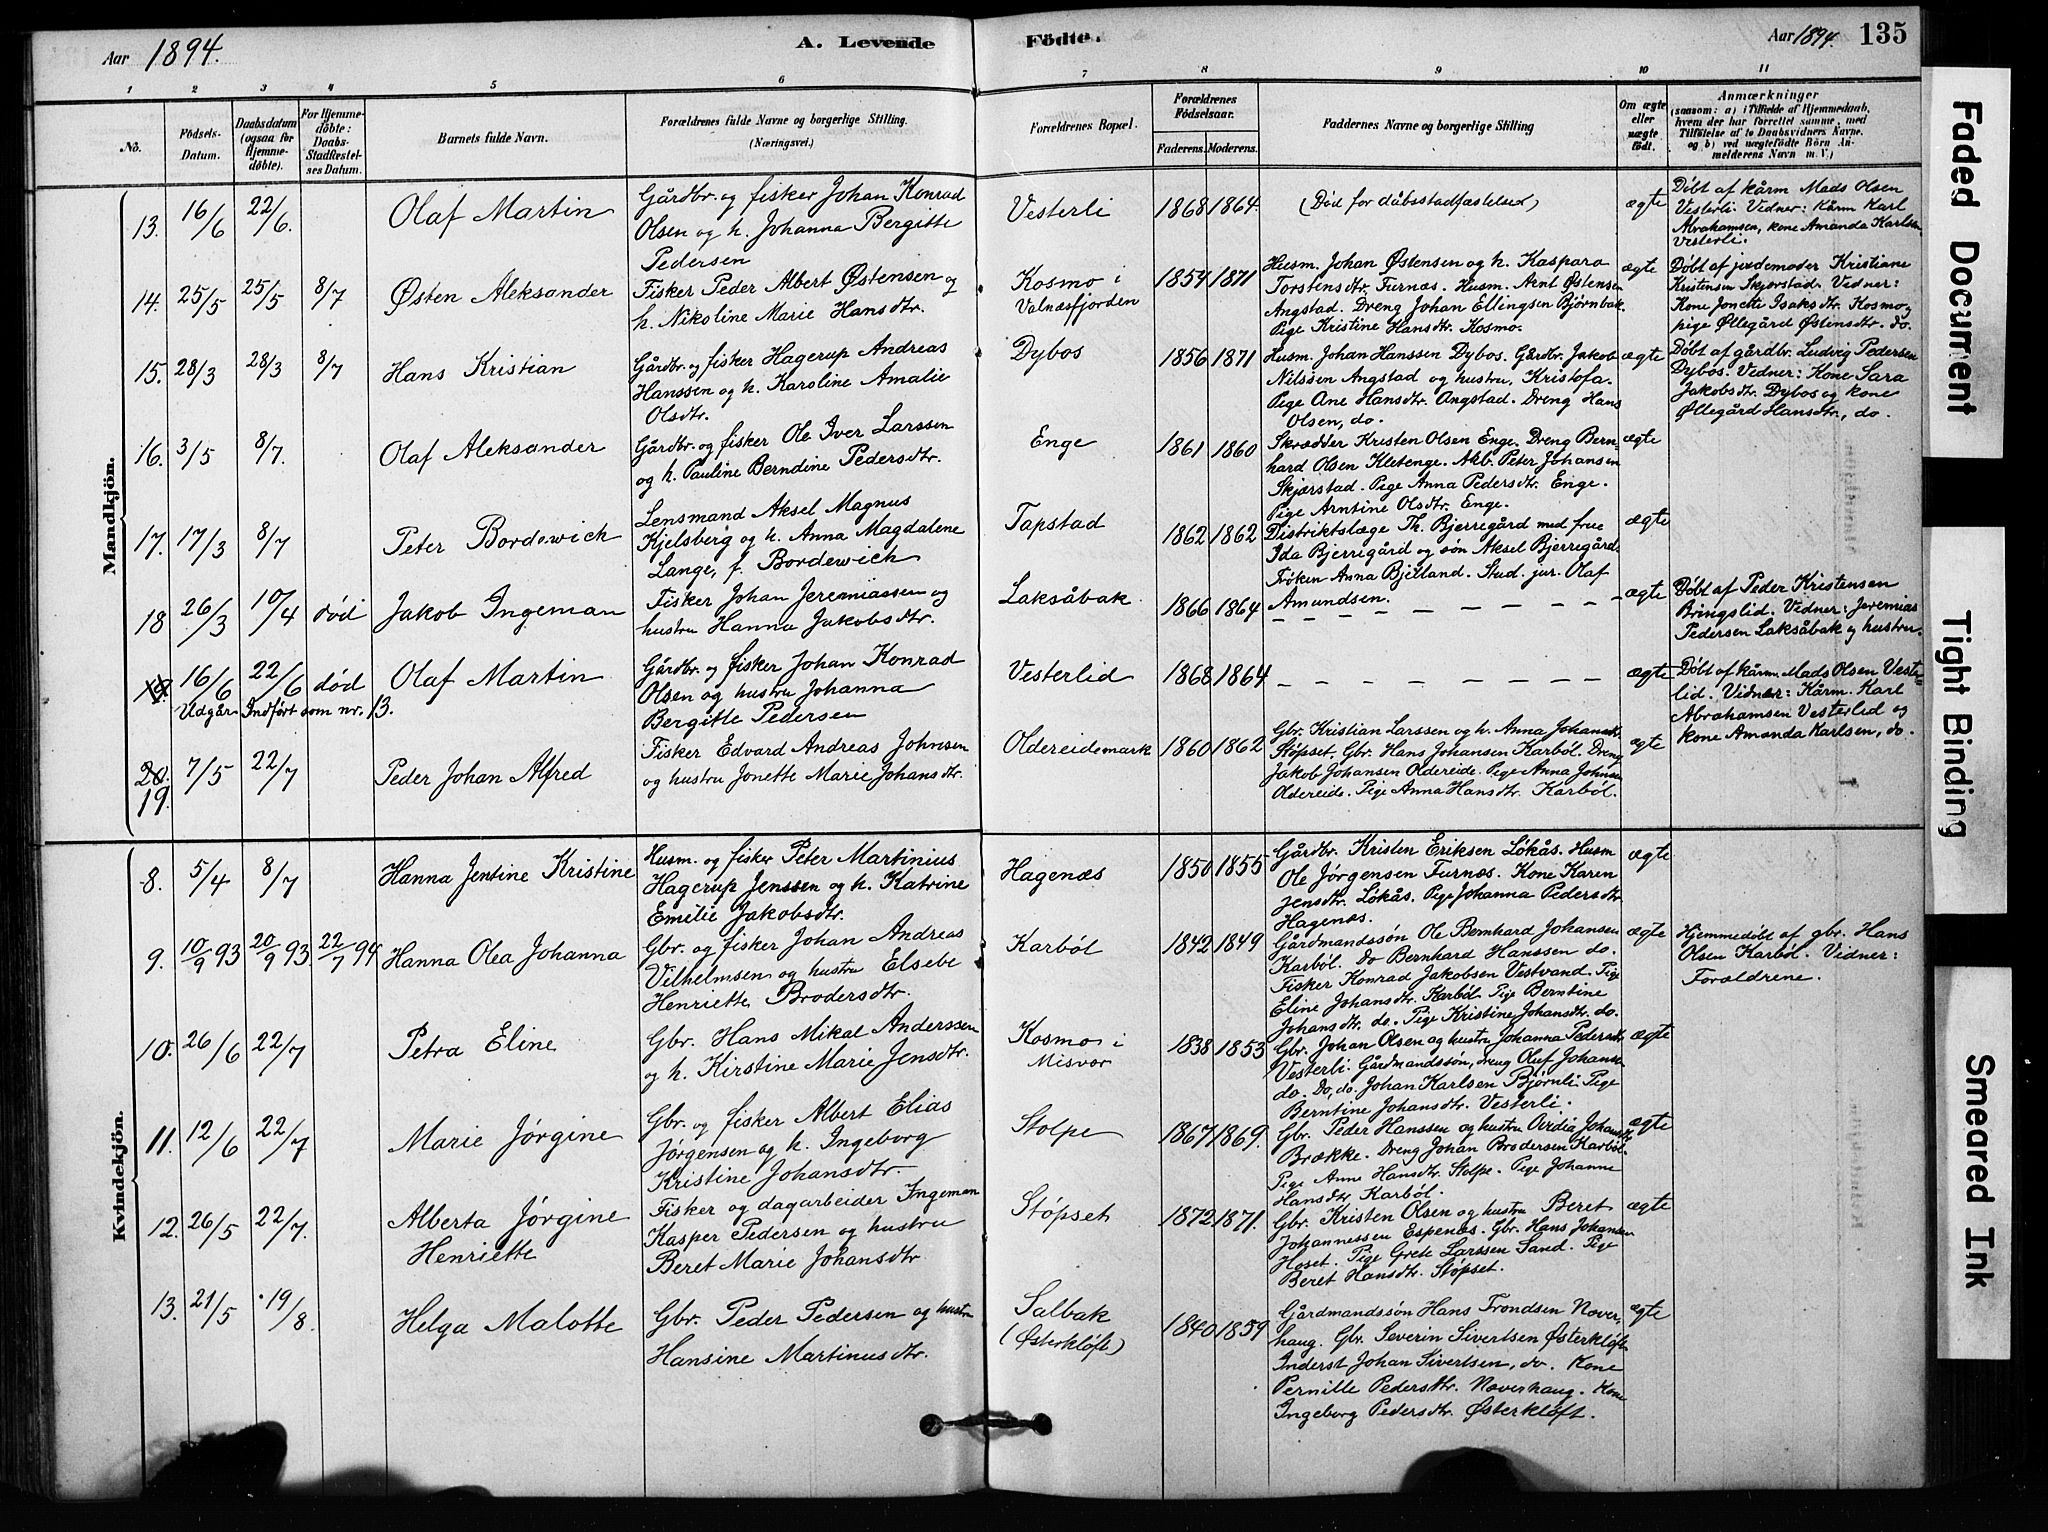 Aar 1894.
A. Levende Födte.
Aar 1894. 135
1 2 3 4 5 6 7 8 9 10 11
No.
Födsels-
Datum.
Daabsdatum
(ogsaa for
Hjemme-
döbte).
For Hjemme-
döbte:
Daabs-
Stadfæstel-
ses Datum.
Barnets fulde Navn.
Forældrenes fulde Navne og borgerlige Stilling.
(Næringsvei.)
Forældrenes Bopæl.
Forældrenes
Födselsaar.
Faderens. Moderens.
Faddernes Navne og borgerlige Stilling
Om ægte
eller
uægte
födt.
Anmærkninger
(saasom: a) i Tilfælde af Hjemmedaab,
hvem der har forrettet samme, med
Tilföielse af to Daabsvidners Navne.
og b) ved uægtefödte Börn An-
melderens Navn m. V.)
Mandkjön.
13. 16/6 22/6. Olaf Martin
Gårdbr. og fisker Johan Konrad
Olsen og h. Johanna Bergitte
Pedersen
Vesterli 1868 1864. (Død før dåbsstadfæstelsed) ægte
Døbt af kårm Mads Olsen
Vesterli. Vidner: Kårm Karl
Abrahamsen, kone Amanda Karlsen
Vesterli.
14. 25/5 25/5 8/7 Østen Aleksander
Fisker Peder Albert Østensen og
h. Nikoline Marie Hansdtr.
Kosmo i
Valnæsfjorden
1854 1871
Husm. Johan Østensen og h. Kaspara
Torstensdtr. Furnæs. Husm. Arnt Østensen
Angstad. Dreng Johan Ellingsen Bjørnbak.
Pige Kristine Hansdtr. Kosmo.
ægte
Døbt af jordemoder Kristiane
Kristensen Skjerstad. Vidner:
Kone Jonette Isaksdtr. Kosmo og
pige Øllegård Østensdtr. do.
15. 28/3 28/3 8/7 Hans Kristian
Gårdbr. og fisker Hagerup Andreas
Hanssen og h. Karoline Amalie
Olsdtr.
Dybos 1856 1871
Husm. Johan Hanssen Dybos. Gårdbr. Jakob
Nilssen Angstad og hustru, Kristofa.
Pige Ane Hansdtr. Angstad. Dreng Hans
Olsen, do.
ægte
Døbt af gårdbr. Ludvig Pedersen
Dybos. Vidner: Kone Sara
Jakobsdtr. Dybos og kone
Øllegård Hansdtr, do.
16. 3/5 8/7. Olaf Aleksander
Gårdbr. og fisker Ole Iver Larssen
og h. Pauline Berndine Pedersdtr.
Enge 1861 1860
Skrædder Kristen Olsen Enge. Dreng Bern-
hard Olsen Kletenge. Arb. Peter Johansen
Skjærstad. Pige Anna Pedersdtr. Enge.
Pige Arntine Olsdtr. Enge.
ægte
17. 17/3 8/7 Peter Bordewich
Lensmand Aksel Magnus
Kjelsberg og h. Anna Magdalene
Lange, f. Bordewich
Tapstad 1862 1862
Distriktslæge Th. Bjerregård med frue
Ida Bjerregård og søn Aksel Bjerregård.
Frøken Anna Bjelland. Stud. jur. Olaf
Amundsen.
ægte
18 26/3 10/4 død Jakob Ingeman
Fisker Johan Jeremiassen og
hustru Hanna Jakobsdtr.
Laksåbak. 1866 1864 — — — — — — — — ægte
Døbt af Peder Kristensen
Bringslid. Vidner: Jeremias
Pedersen Laksåbak og hustru.
19. 16/6 22/6 død Olaf Martin
Udgår. Indført som nr. 13.
Gårdbr. og fisker Johan Konrad
Olsen og hustru Johanna
Bergitte Pedersen
Vesterlid 1868 1864 — — — — — — — — ægte
Døbt af kårm. Mads Olsen Vester-
lid. Vidner: Kårm. Karl
Abrahamsen Vesterlid og
kone Amanda Karlsen, do.
20.
19. 7/5 22/7 Peder Johan Alfred
Fisker Edvard Andreas Johnsen
og hustru Jonette Marie Johansdtr.
Oldereidemark 1860 1862
Gbr. Kristian Larssen og h. Anna Johansdtr.
Støpset. Gbr. Hans Johansen Karbøl. Dreng
Jakob Johansen Oldereide. Pige Anna Johnsen
Oldereide. Pige Anna Hansdtr. Karbøl.
ægte
Kvindekjön.
8. 5/4 8/7 Hanna Jentine Kristine
Husm. og fisker Peter Martinius
Hagerup Jenssen og h. Katrine
Emilie Jakobsdtr.
Hagenæs 1850 1855
Gårdbr. Kristen Eriksen Løkås. Husm
Ole Jørgensen Furnæs. Kone Karen
Jensdtr. Løkås. Pige Johanna Pedersdtr
Hagenæs.
ægte
9. 10/9 93 20/9 93. 22/7 94 Hanna Olea Johanna
Gbr. og fisker Johan Andreas
Vilhelmsen og hustru Elsebe
Henriette Brodersdtr.
Karbøl 1842 1849
Gårdmandssøn Ole Bernhard Johansen
Karbøl. Do Bernhard Hanssen do.
Fisker Konrad Jakobsen Vestvand. Pige
Eline Johansdtr. Karbøl Pige Berntine
Johansdtr. do. Pige Kristine Johansdtr. do.
ægte
Hjemmedøbt af gbr. Hans
Olsen Karbøl. Vidner:
Forældrene.
10. 26/6 22/7 Petra Eline
Gbr. Hans Mikal Anderssen
og h. Kirstine Marie Jensdtr.
Kosmo i
Misvær
1838 1853
Gbr. Johan Olsen og hustru Johanna Pedersdtr
Vesterli. Gårdmandssøn, dreng Oluf Johansen
do. Do, do. Johan Karlsen Bjørnli. Pige
Berntine Johansdtr. Vesterli.
ægte
11. 12/6 22/7 Marie Jørgine
Gbr. og fisker Albert Elias
Jørgensen og h. Ingeborg
Kristine Johansdtr.
Stolpe 1867 1869.
Gbr. Peder Hanssen og hustru Johansdtr
Brække. Dreng Johan Brodersen Karbøl.
Pige Anne Hansdtr. Stolpe. Pige Johanne
Hansdtr Karbøl.
ægte
12. 26/5 22/7. Alberta Jørgine
Henriette
Fisker og dagarbeider Ingeman
Kasper Pedersen og hustru
Beret Marie Johansdtr.
Støpset 1872 1871.
Gbr. Kristen Olsen og hustru Beret
Johannessen Espenæs. Gbr. Hans Johansen
Hoset. Pige Grete Larssen Sand. Pige
Beret Hansdtr. Støpset.
ægte
13. 21/5 19/8. Helga Malotte
Gbr. Peder Pedersen og hustru
Hansine Martinusdtr.
Salbak
(Østerkløft)
1840 1859
Gårdmandssøn Hans Trondsen Næver-
haug. Gbr. Severin Sivertsen Østerkløft
Inderst Johan Sivertsen, do. Kone
Pernille Pedersdtr. Næverhaug. Kone
Ingeborg Pedersdtr. Østerkløft.
ægte
Faded Document
Tight Binding
Smeared Ink